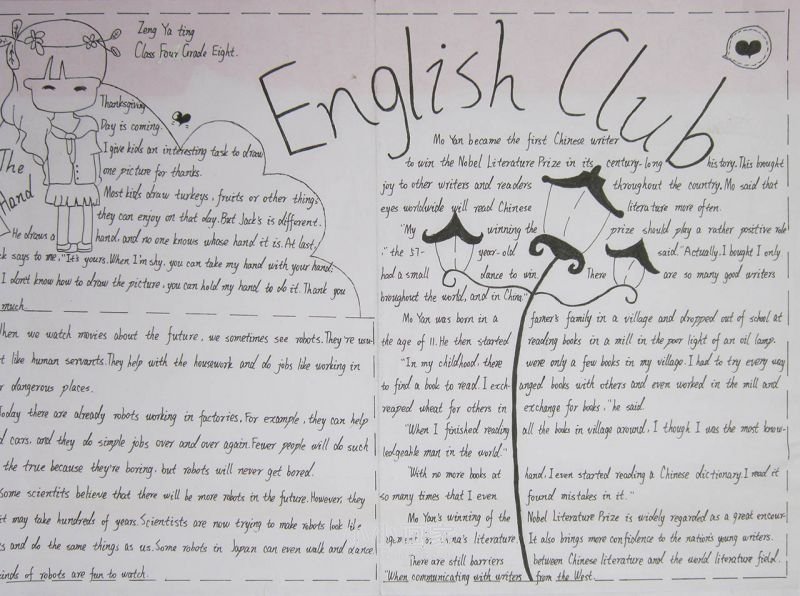 Zeng Ya ting
Class Four Grade Eight.
English Club
The
Hand
Thanksgiving
Day is coming.
I give kids an interesting task to draw
one picture for thanks.
Most kids draw turkeys, fruits or other things
they can enjoy on that day. But Jack's is different.
He draws a hand, and no one knows whose hand it is. At last,
says to me, "It's yours. When I'm shy, you can take my hand with your hand.
I don't know how to draw the picture, you can hold my hand to do it. Thank you
much.
When we watch movies about the future, we sometimes see robots. They're usu-
like human servants. They help with the housework and do jobs like working in
dangerous places.
Today there are already robots working in factories. For example, they can help
cars, and they do simple jobs over and over again. Fewer people will do such
the true because they're boring, but robots will never get bored.
Some scientits believe that there will be more robots in the future. However, they
it may take hundreds of years. Scientists are now trying to make robots look like
and do the same things as us. Some robots in Japan can even walk and dance.
kinds of robots are fun to watch.
Mo Yan became the first Chinese writer
to win the Nobel Literature Prize in its century-long history. This brought
joy to other writers and readers throughout the country. Mo said that
eyes worldwide will read Chinese literature more often.
"My winning the prize should play a rather positive role
," the 57- year-old said. "Actually, I bought I only
had a small dance to win. There are so many good writers
broughout the world, and in China."
Mo Yan was born in a famer's family in a village and dropped out of school at
the age of 11. He then started reading books in a mill in the poor light of an oil lamp.
"In my childhood, there were only a few books in my village. I had to try every way
to find a book to read. I exch- anged books with others and even worked in the mill and
reaped wheat for others in exchange for books," he said.
"When I finished reading all the books in village around, I though I was the most know-
ledgeable man in the world."
"With no more books at hand, I even started reading a Chinese dictionary. I read it
so many times that I even found mistakes in it."
Mo Yan's winning of the Nobel Literature Prize is widely regarded as a great encour-
literature It also brings more confidence to the nation's young writers.
There are still barriers between Chinese literature and the world literature field.
"When communicating with writers from the West.